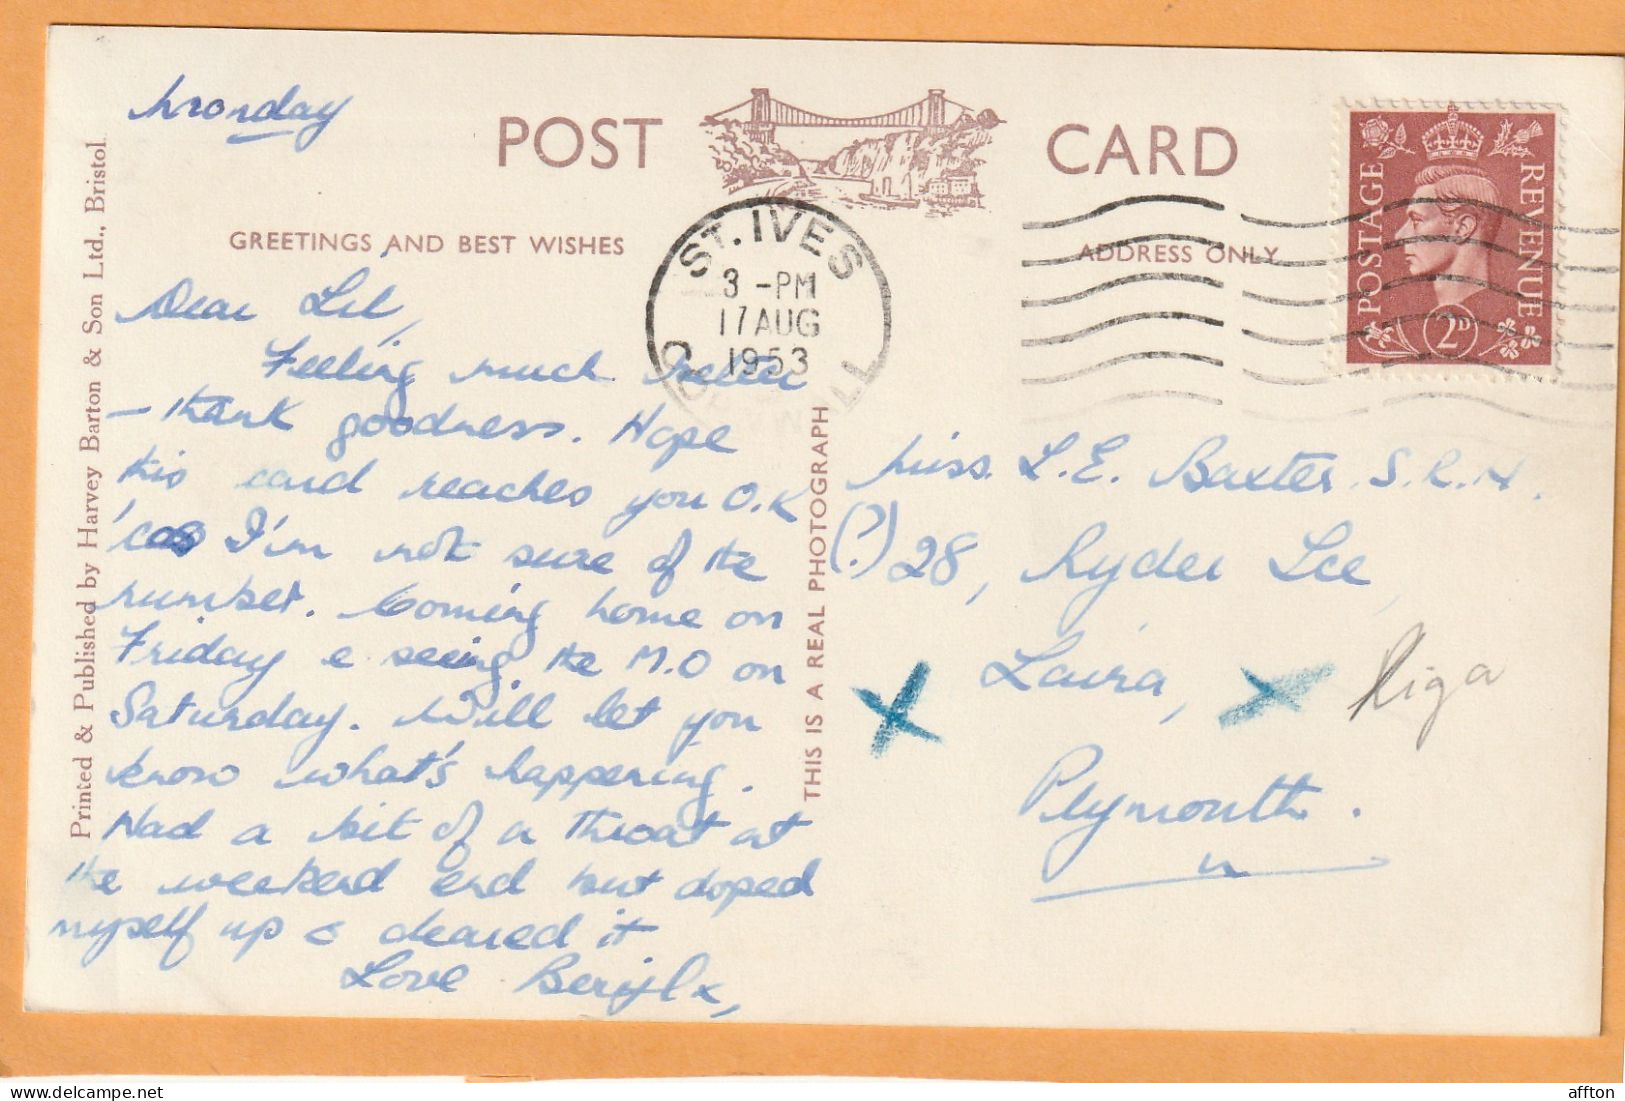 Monday
POST CARD
GREETINGS AND BEST WISHES
ADDRESS ONLY
ST. IVES
3 -PM
17 AUG
1953
CORNWALL
POSTAGE
REVENUE
2D
Printed & Published by Harvey Barton & Son Ltd., Bristol.
THIS IS A REAL PHOTOGRAPH
Dear Lil,
Feeling much better
– thank goodness. Hope
this card reaches you O.K
'cos I'm not sure of the
number. Coming home on
Friday & seeing the M.O on
Saturday. Will let you
know what's happening.
Had a bit of a throat at
the weekend end but doped
myself up & cleared it
Love Beryl x,
Miss. L.E. Baxter S.R.N.
(?) 28, Ryder Lee,
Laira,
Plymouth.
Riga
affton